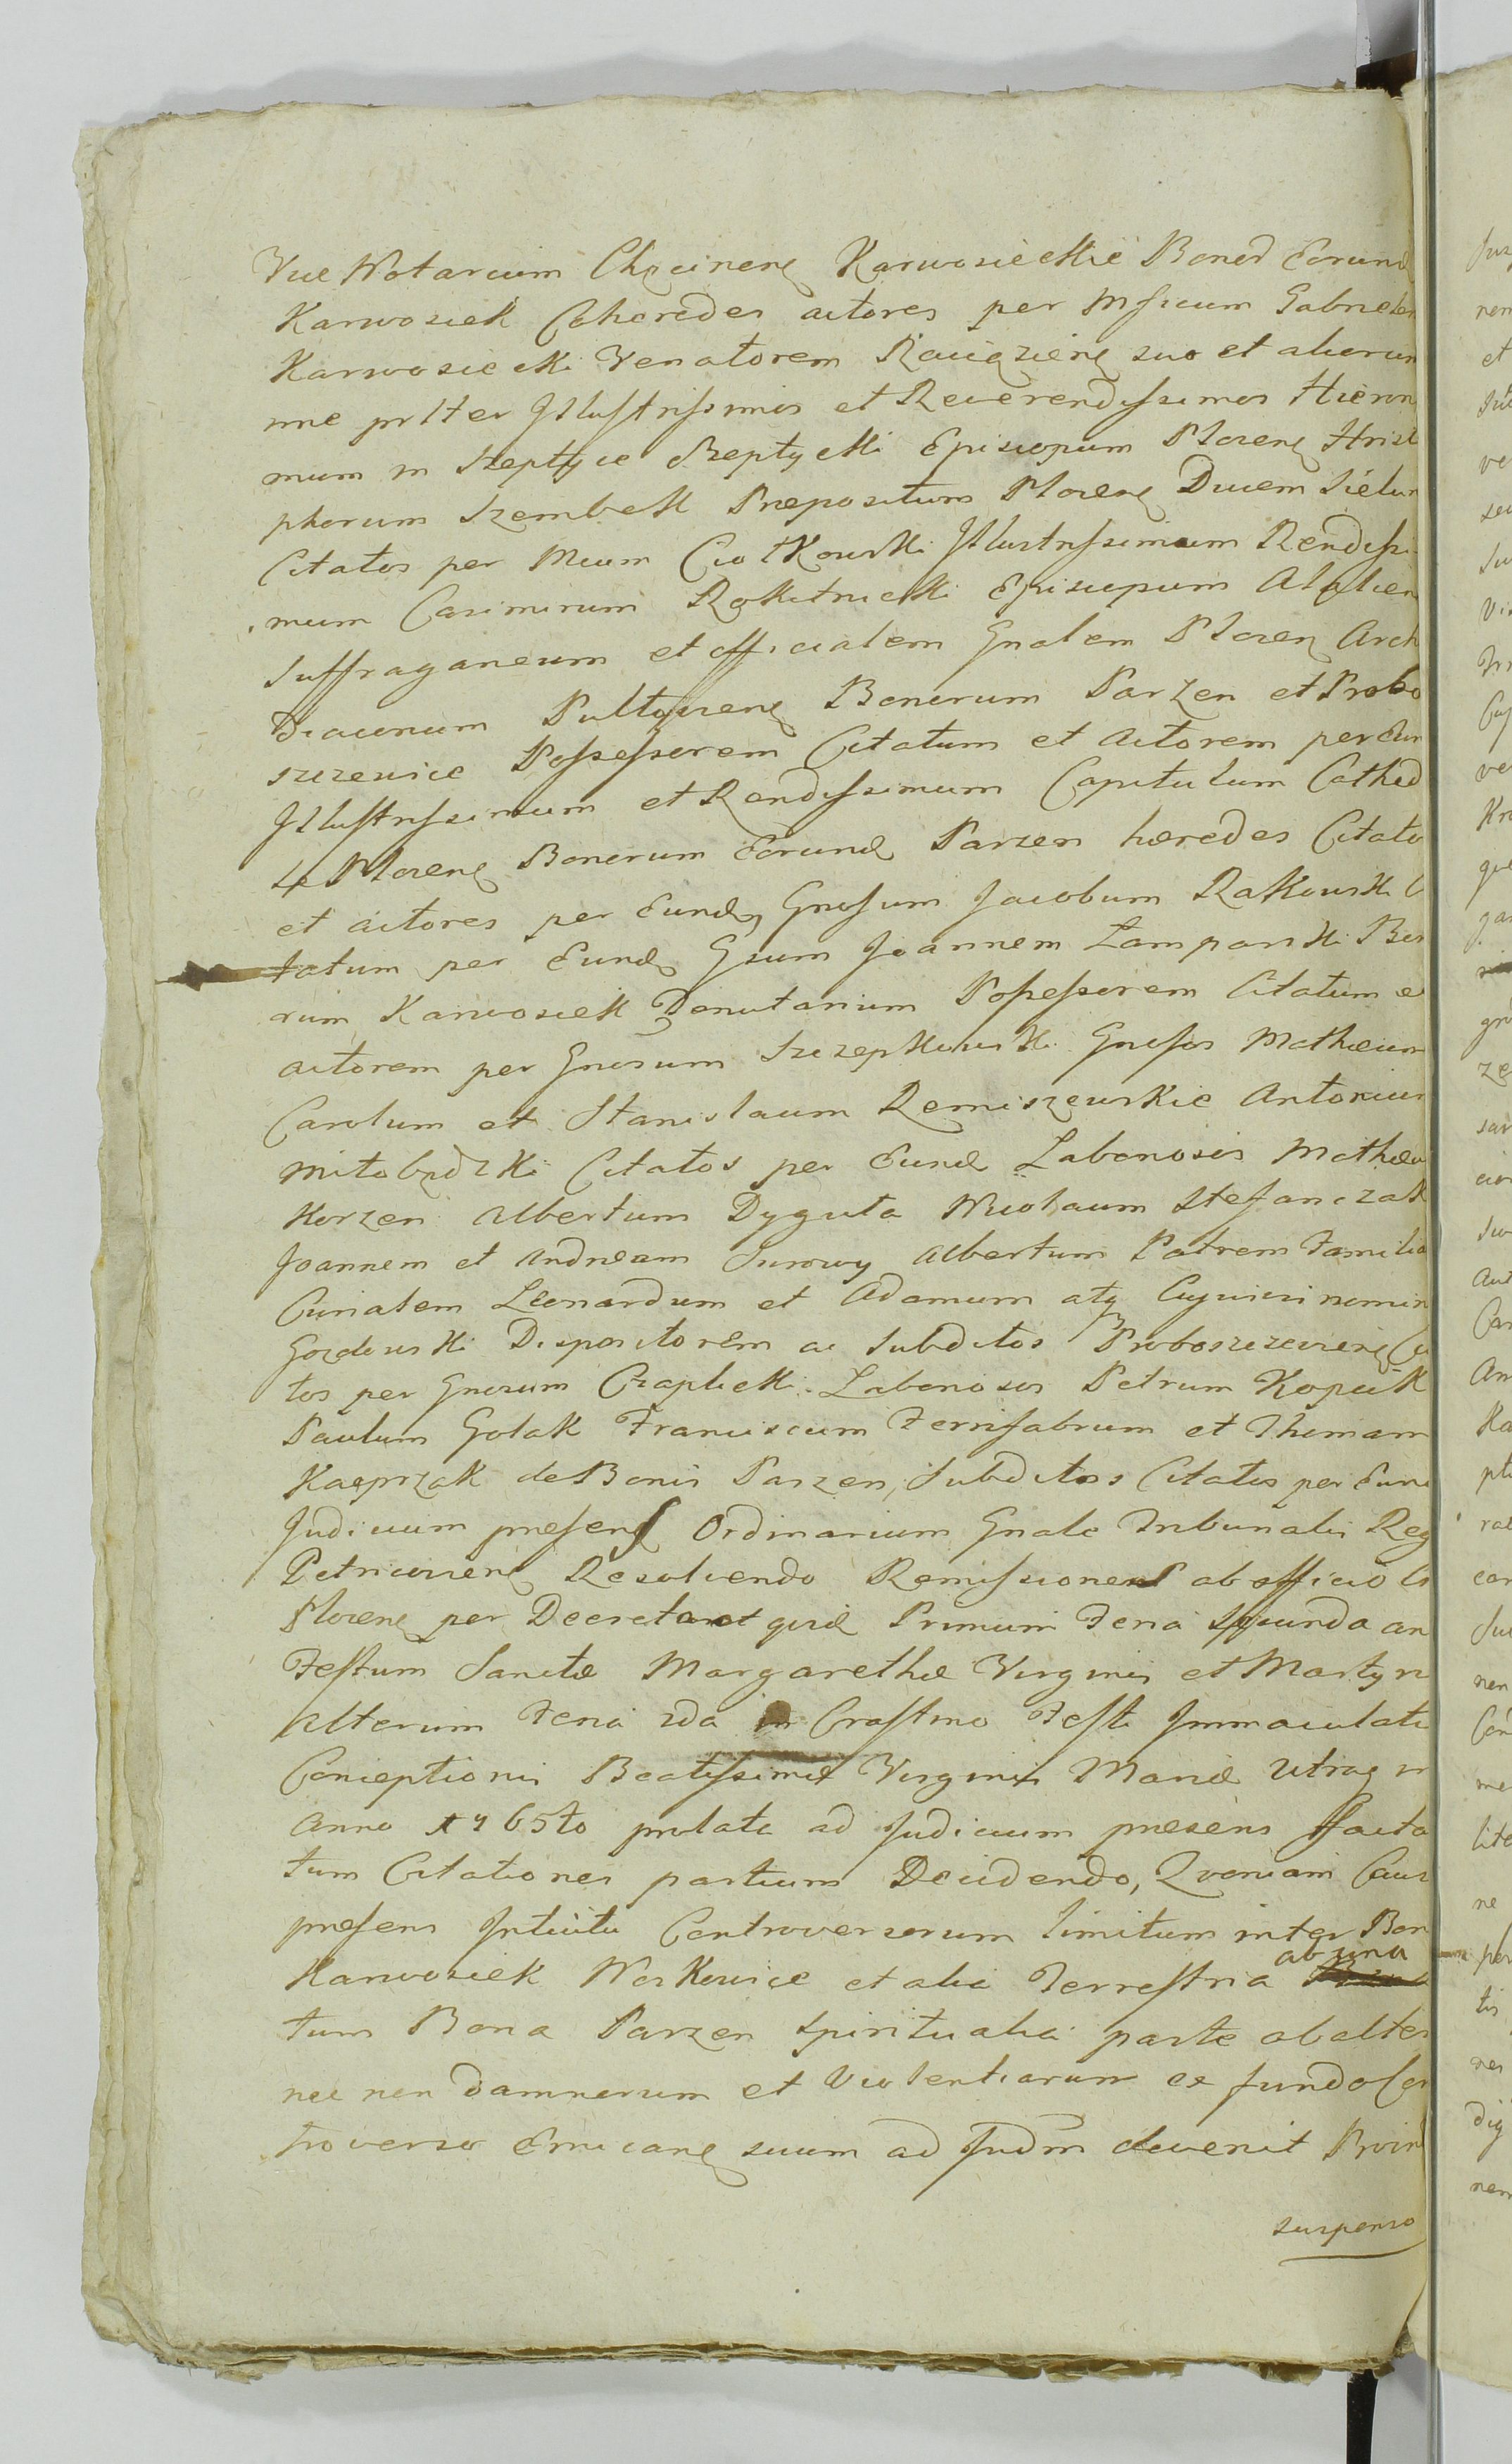 Vice Notarium Chęcinens Karwosieckie Bonor Eorund
Karwosiek Cohæredes actores per Mficum Gabrielem
Karwosiecki Venatorem Raciąziens suo et aliorum
nne prlter Illustrissimos et Reverendissimos Hieron
mum in Szeptyce Szeptycki Episcopum Plocens Hristo
phorum Szembek Præpositum Plocens Ducem Sielun
Citatos per Mcum Ciołkowski Illustrissimum Rendissi
mum Casimirum Rokitnicki Episcopum
Suffraganeum et officialem Gnalem Plocen Archi
diaconum Pultoviens Bonorum Parzen et Probo
szczewice Possessorem Citatum et actorem per Eun
Illustrissimum et Rendissimum Capitulum Cathed
le Plocens Bonorum Eorund Parzen hæredes Citato
et actores per Eund Gnosum Jacobum Rakowski Ci
tatum per Eund Gsum Joannem Lamparski Bon
rum Karwosiek Tenutarium Possessorem Citatum et
actorem per Gnosum Szczepkowski Gnosos Mathæum
Carolum et Stanislaum Remiszewskie Antonium
Mitobędzki Citatos per Eund Laboriosos Mathæu
Korzen Albertum Dyguta Nicolaum Stefanczak
Joannem et Andream Surowy Albertum Patrem Familia
Curialem Leonardum et Adamum atq Cujusvi nomin
Gozdowski Dispositorem ac Subditos Proboszczeviens Ci
tos per Gnosum Czaplicki Laboriosos Petrum Kopcik
Paulum Golak Franciscum Ferrifabrum et Thomam
Kacprzak de Bonis Parzen, Subditos Citatos per Eund
Judicium præsens Ordinarium Gnale Tribunalis Reg
Petricoviens Resolvendo Remissiones ab officio Ca
Plocens per Decreta ut quid Primum Feria Secunda an
Festum Sanctæ Margarethæ Virginis et Martyris
Alterum Feria 2da in Crastino Festi Immaculatæ
Conceptionis Beatissimæ Virginis Mariæ Utraq in
Anno 1765to prolata ad Judicium præsens facta
tum Citationes partium Decidendo, Quoniam Caus
præsens Intuitu Controversorum limitum inter Bon
Karwosiek Noskowice et alia Terrestria ab una
tum Bona Parzen Spiritualia parte ab alter
nec non damnorum et Violentiarum ex fundo Con
troverso Emicans suum ad Judm devenit Proin
suspenso